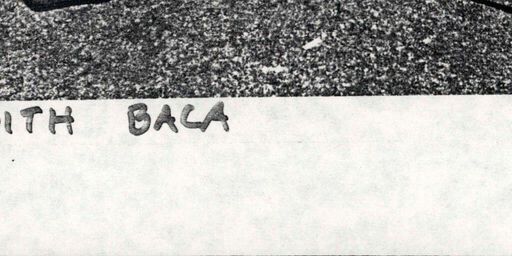 ITH BACA